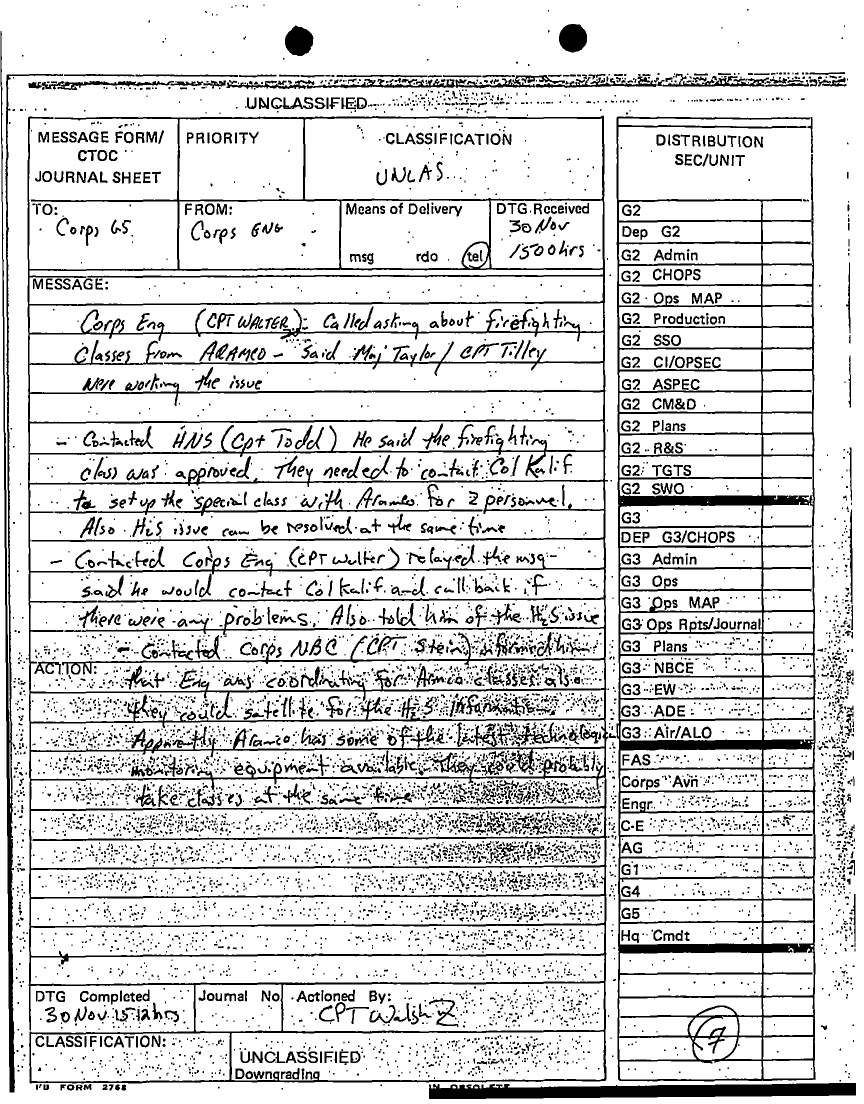 UNCLASSIFIED
MESSAGE FORM/
CTOC
JOURNAL SHEET
PRIORITY
CLASSIFICATION
UNCLAS
TO:
Corps G5
FROM:
Corps ENG
Means of Delivery
msg rdo tel
DTG Received
30 Nov
1500hrs
MESSAGE:
Corps Eng (CPT WALTER): Called asking about firefighting
classes from ARAMCO - said Maj Taylor / CPT Tilley
were working the issue
- Contacted HNS (Cpt Todd) He said the firefighting
class was approved. They needed to contact Col Kalif
to set up the special class with Aramco for 2 personnel.
Also H2S issue can be resolved at the same time
- Contacted Corps Eng (CPT Walter) relayed the msg -
said he would contact Col Kalif and call back if
there were any problems. Also told him of the H2S issue
- Contacted Corps NBC (CPT Stein) informed him
ACTION:
that Eng was coordinating for Armco classes also
they could satellite for the H2S information.
Apparently Aramco has some of the latest technological
monitoring equipment available. They could probably
take classes at the same time
DTG Completed
30 Nov 1512hrs
Journal No
Actioned By:
CPT Walsh
CLASSIFICATION:
UNCLASSIFIED
Downgrading
FORM 2768
OBSOLETE
DISTRIBUTION
SEC/UNIT
G2
Dep G2
G2 Admin
G2 CHOPS
G2 Ops MAP
G2 Production
G2 SSO
G2 CI/OPSEC
G2 ASPEC
G2 CM&D
G2 Plans
G2 R&S
G2 TGTS
G2 SWO
G3
DEP G3/CHOPS
G3 Admin
G3 Ops
G3 Ops MAP
G3 Ops Rpts/Journal
G3 Plans
G3 NBCE
G3 EW
G3 ADE
G3 Air/ALO
FAS
Corps Avn
Engr
C-E
AG
G1
G4
G5
Hq Cmdt
7